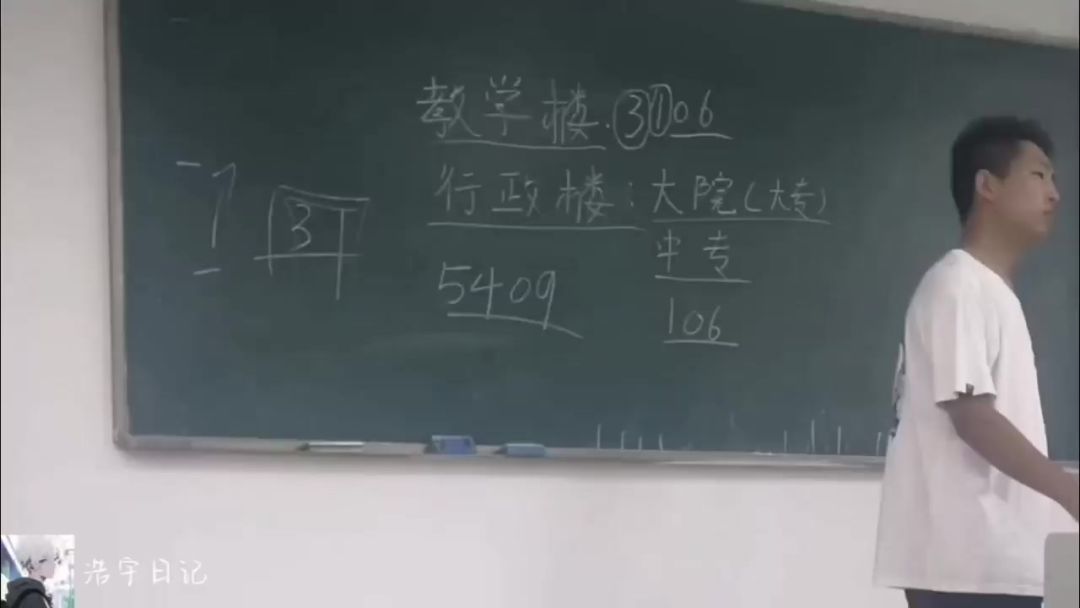 教学楼.③①06
行政楼:大院(大专)
中专
5409
106
1
3
浩宇日记